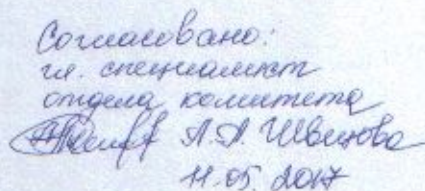 Согласовано:
гл. специалист
отдела комитета
А.А. Швецова
11.05.2017